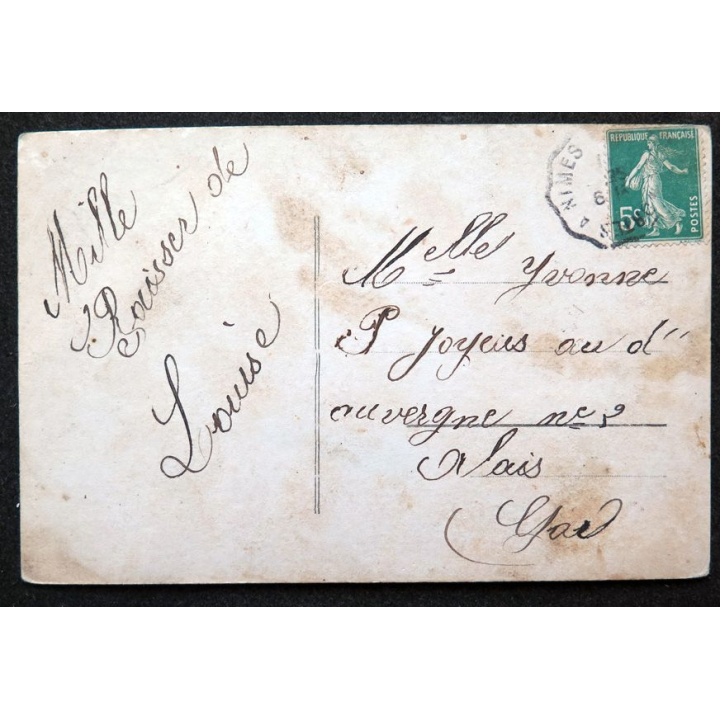 Mille
Baisser de
Louise
NIMES
REPUBLIQUE FRANÇAISE
5c
POSTES
Melle Yvonne
P Joyeus au d'
auvergne
Alais
Gard